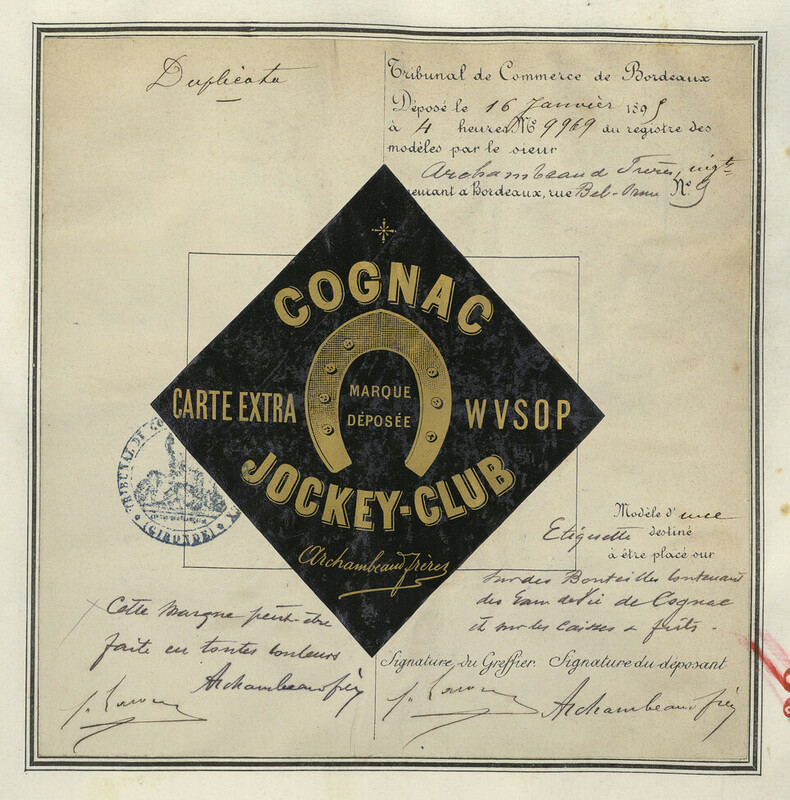 Duplicata
Tribunal de Commerce de Bordeaux
Déposé le 16 Janvier 1895
à 4 heures No 9969 du registre des
modèles par le sieur
Archambeaud Frères, nég.ts
eurant à Bordeaux, rue No 9
COGNAC
MARQUE
DÉPOSÉE
CARTE EXTRA
WVSOP
JOCKEY-CLUB
Archambeaud frères
TRIBUNAL DE CO
(GIRONDE)
Modèle d'une
Etiquette destiné
à être placé sur
sur des Bouteilles contenant
des Eaux de Vie de Cognac
et sur des caisses & futs.
Cette marque peut-être
faite en toutes couleurs
Archambeaud frès
Signature du Greffier. Signature du déposant
Archambeaud frès